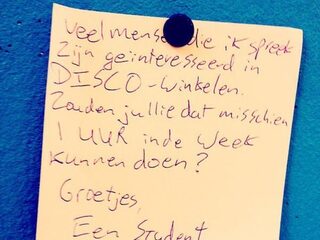 Veel mensen die ik spreek
Zijn geïnteresseerd in
DISCO-winkelen.
Zouden jullie dat misschien
1 UUR in de week
kunnen doen?
Groetjes,
Een Student